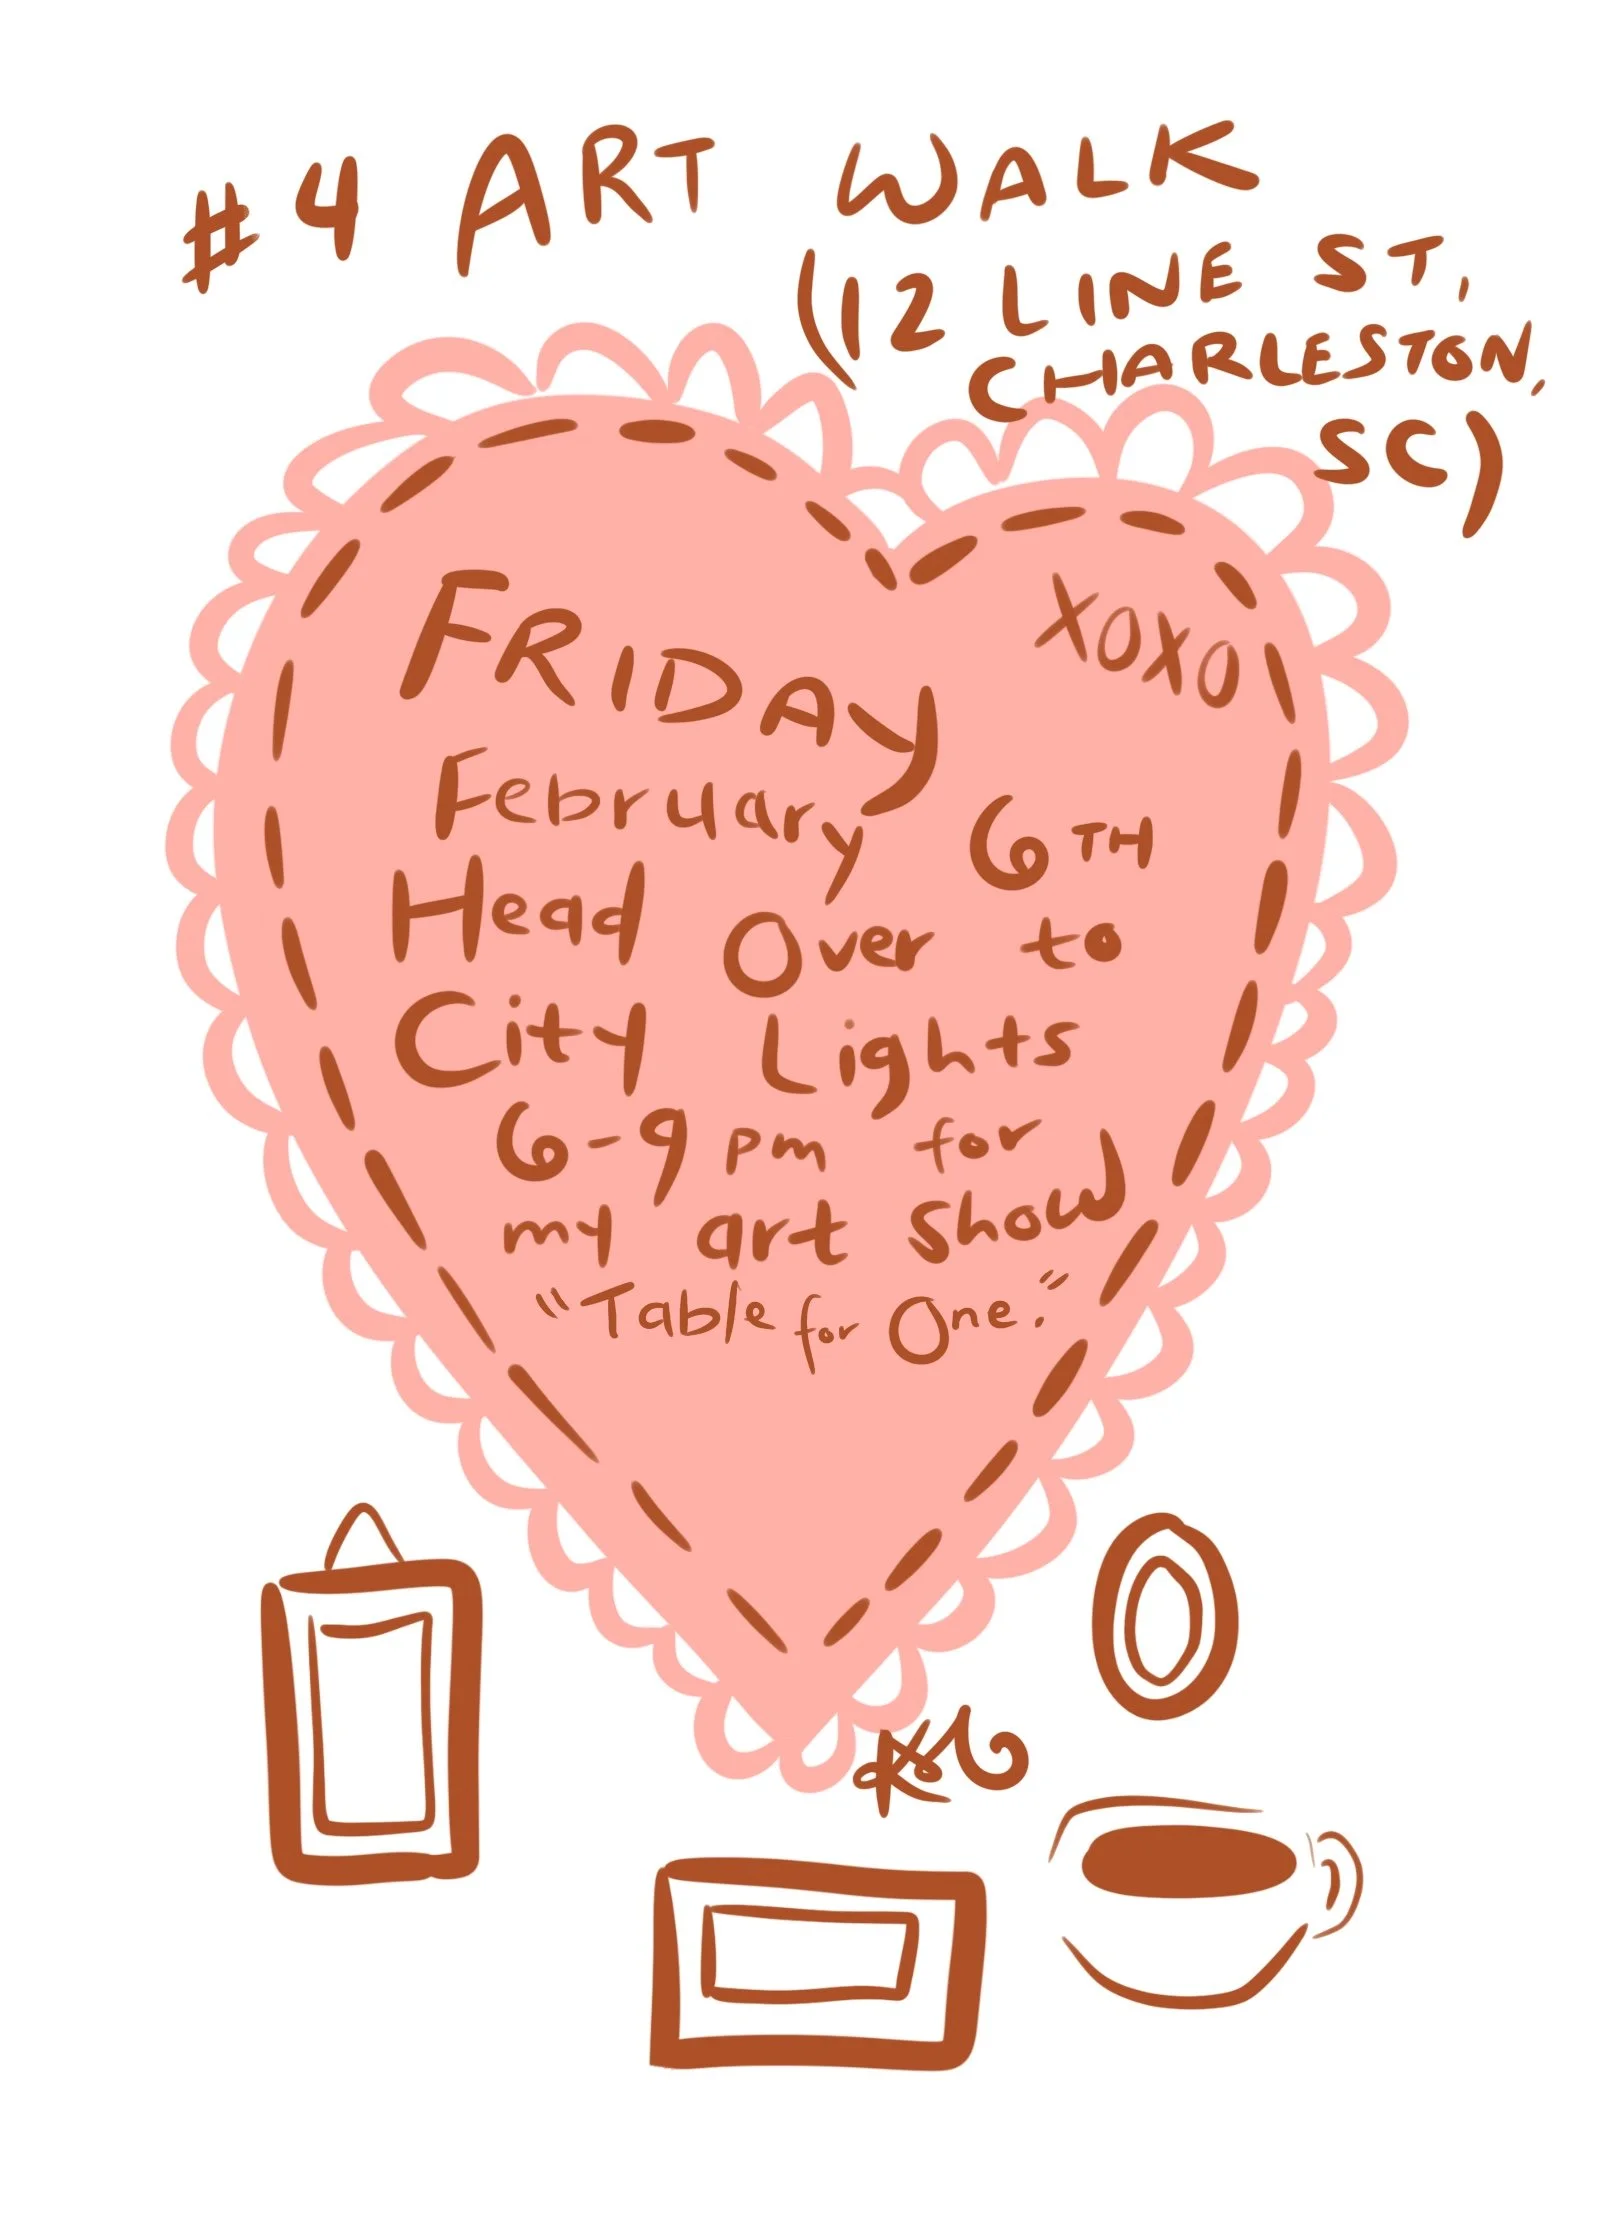 #4 ART WALK
(12 LINE ST,
CHARLESTON,
SC)
XOXO
FRIDAY
February 6TH
Head Over to
City Lights
6-9pm for
my art show
"Table for One."